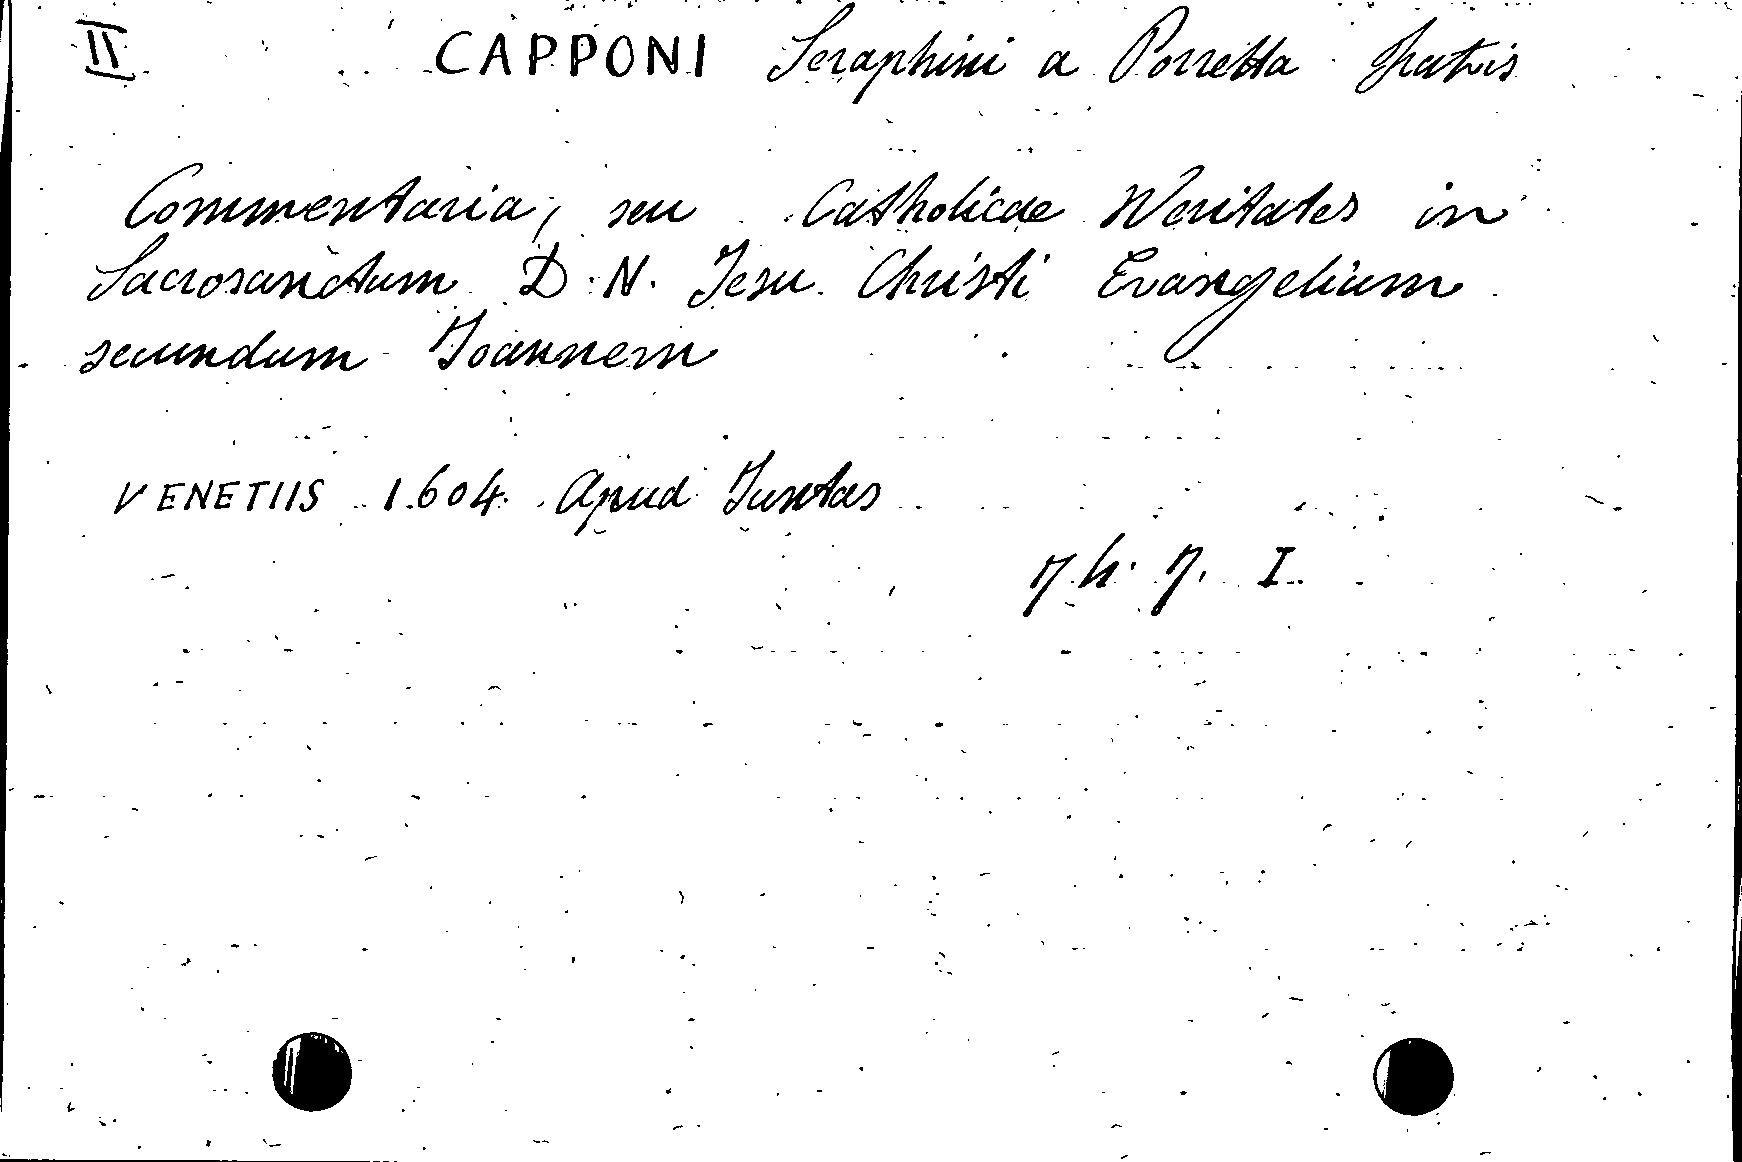 II CAPPONI Seraphini a Porretta Fratris
Commentaria, seu Catholicae Veritates in
Sacrosanctum D. N. Jesu Christi Evangelium
secundum Joannem
VENETIIS 1604 Apud Juntas
7. h. 7. I